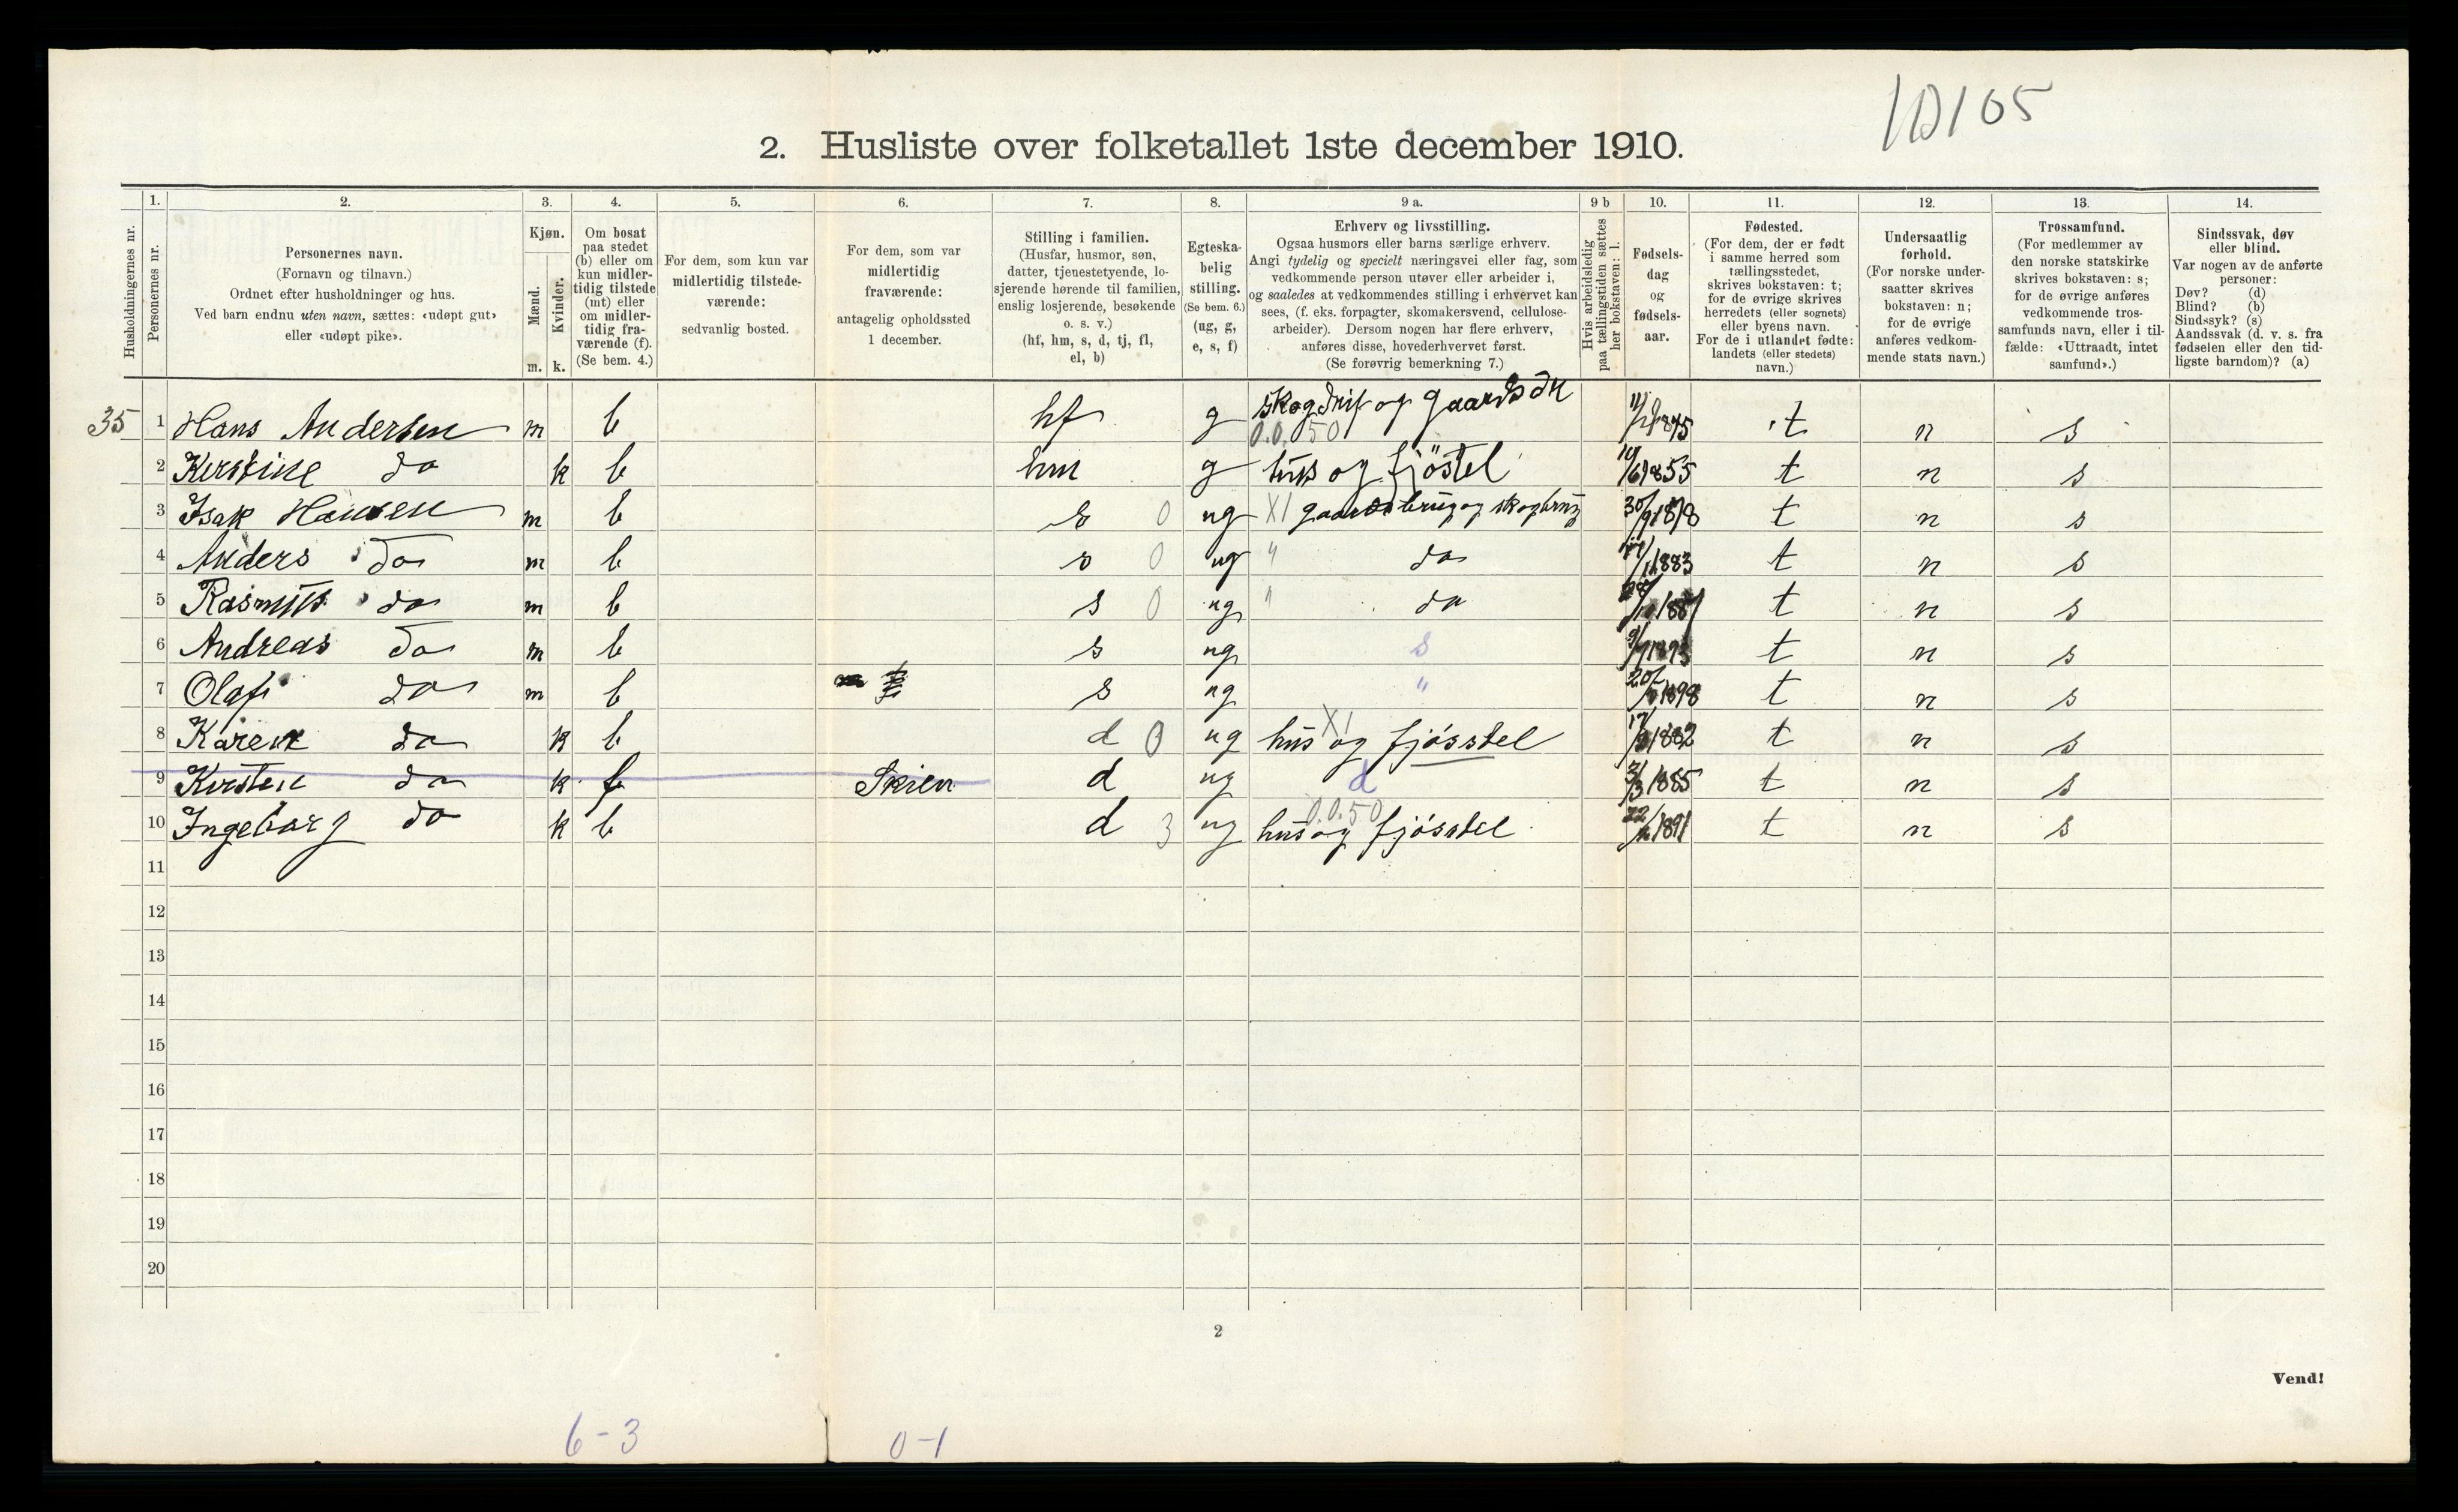 10105
2. Husliste over folketallet 1ste december 1910.
1. 2. 3. 4. 5. 6. 7. 8. 9 a. 9 b 10. 11. 12. 13. 14.
Husholdningernes nr.
Personernes nr.
Personernes navn.
(Fornavn og tilnavn.)
Ordnet efter husholdninger og hus.
Ved barn endnu uten navn, sættes: «udøpt gut»
eller «udøpt pike».
Kjøn.
Mænd.
Kvinder.
m. k.
Om bosat
paa stedet
(b) eller om
kun midler-
tidig tilstede
(mt) eller
om midler-
tidig fra-
værende (f).
(Se bem. 4.)
For dem, som kun var
midlertidig tilstede-
værende:
sedvanlig bosted.
For dem, som var
midlertidig
fraværende:
antagelig opholdssted
1 december.
Stilling i familien.
(Husfar, husmor, søn,
datter, tjenestetyende, lo-
sjerende hørende til familien,
enslig losjerende, besøkende
o. s. v.)
(hf, hm, s, d, tj, fl,
el, b)
Egteska-
belig
stilling.
(Se bem. 6.)
(ug, g,
e, s, f)
Erhverv og livsstilling.
Ogsaa husmors eller barns særlige erhverv.
Angi tydelig og specielt næringsvei eller fag, som
vedkommende person utøver eller arbeider i,
og saaledes at vedkommendes stilling i erhvervet kan
sees, (f. eks. forpagter, skomakersvend, cellulose-
arbeider). Dersom nogen har flere erhverv,
anføres disse, hovederhvervet først.
(Se forøvrig bemerkning 7.)
Hvis arbeidsledig
paa tællingstiden sættes
her bokstaven: l.
Fødsels-
dag
og
fødsels-
aar.
Fødested.
(For dem, der er født
i samme herred som
tællingsstedet,
skrives bokstaven: t;
for de øvrige skrives
herredets (eller sognets)
eller byens navn.
For de i utlandet fødte:
landets (eller stedets)
navn.)
Undersaatlig
forhold.
(For norske under-
saatter skrives
bokstaven: n;
for de øvrige
anføres vedkom-
mende stats navn.)
Trossamfund.
(For medlemmer av
den norske statskirke
skrives bokstaven: s;
for de øvrige anføres
vedkommende tros-
samfunds navn, eller i til-
fælde: «Uttraadt, intet
samfund».)
Sindssvak, døv
eller blind.
Var nogen av de anførte
personer:
Døv? (d)
Blind? (b)
Sindssyk? (s)
Aandssvak (d. v. s. fra
fødselen eller den tid-
ligste barndom)? (a)
35 1 Hans Andersen m b hf g skogdrif og gaards 0.0.50 t n s
2 Kirstine do k b hm g hus og fjöstel 1855 t n s
3 Isak Hansen m b s 0 ug XI gaardsbrug og skogbrug 30/9 1878 t n s
4 Anders do m b s 0 ug " do 1883 t n s
5 Rasmus do m b s 0 ug " do t n s
6 Andreas do m b s ug s t n s
7 Olaf do m b s ug " 1898 t n s
8 Karen do k b d 0 ug XI hus og fjósstel 1882 t n s
9 Kirsten do k f Skien d ug d 1885 t n s
10 Ingeborg do k b d 3 ug 0.0.50 hus og fjósstel 1891 t n s
11
12
13
14
15
16
17
18
19
20
2
Vend!
6-3 0-1